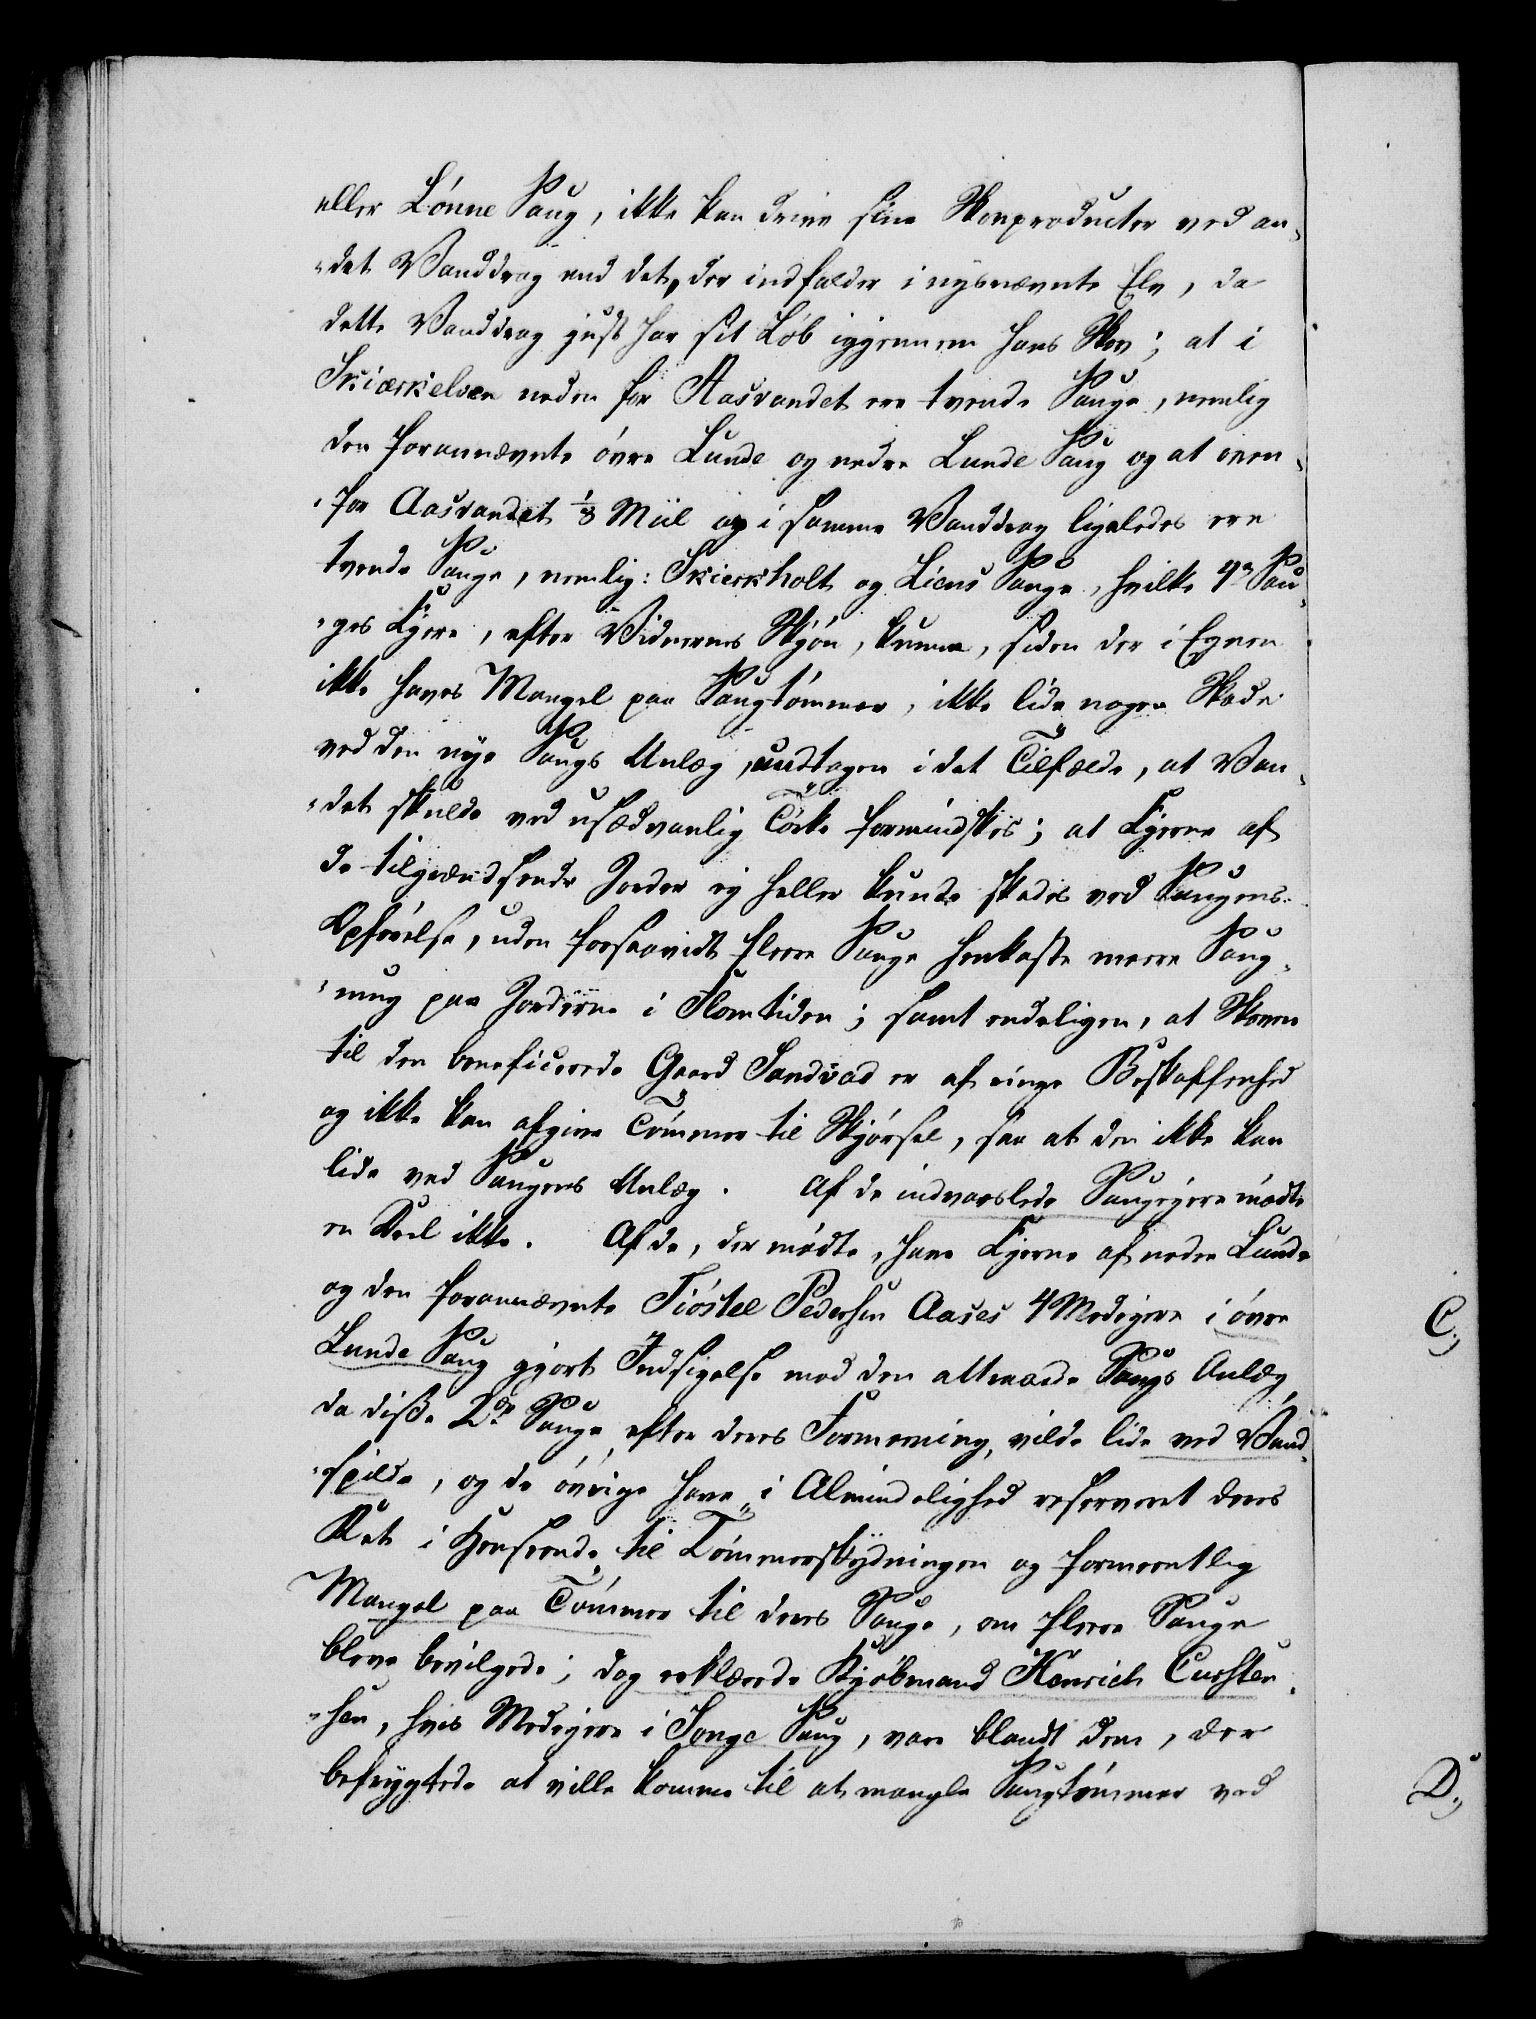 eller Lönne Saug, ikke kan drive sine Skovproducter ved an-
det Vanddrag end det, der indfalder i nysnævnte Elv, da
dette Vanddrag just har sit Löb igjennem hans Skov; at i
Skiærkelven neden for Aasvandet ere tvende Sauge, nemlig
den forannævnte övre Lunde og nedre Lunde Saug og at oven-
for Aasvandet 1/8 Miil og i samme Vanddrag ligeledes ere
tvende Sauge, nemlig: Skierkholt og Liens Sauge, hvilke 4re Sau-
ges Ejere, efter Vidnernes Skjön, kunne, siden der i Egnen
ikke haves Mangel paa Saugtömmer, ikke lide nogen Skade
ved den nye Saugs Anlæg, undtagen i det Tilfælde, at Van-
det skulde ved usædvanlig Törke formindskes; at Ejerne af
de tilgrændsende Jorder ej heller kunde skades ved Saugens
Opförelse, uden forsaavidt flere Sauge henkaste meere Saug-
mug paa Jorderne i Flomtiden; samt endeligen, at Skoven
til den beneficerede Gaard Sandvad er af ringe Beskaffenhed
og ikke kan afgive Tömmer til Skjörsel, saa at den ikke kan
lide ved Saugens Anlæg. Af de indvarslede Saugejere mödte
en Deel ikke. Af de, der mödte, have Ejerne af nedre Lunde
og den forannævnte Tiöstel Pedersen Aases 4 Medejere i övre
Lunde Saug gjort Indsigelse mod den attraaede Saugs Anlæg,
da disse 2de Sauge, efter deres Formening, vilde lide ved Vand-
spilde, og de övrige have i Almindelighed reserveret deres
Ret i Henseende til Tömmerskydningen og formeentlig
Mangel paa Tömmer til deres Sauge, om flere Sauge
bleve bevilgede; dog erklærede Kjöbmand Henrich Carsten-
sen, hvis Medejere i Songe Saug, vare blandt dem, der
befrygtede at ville komme til at mangle Saugtömmer ved
C.)
D.)